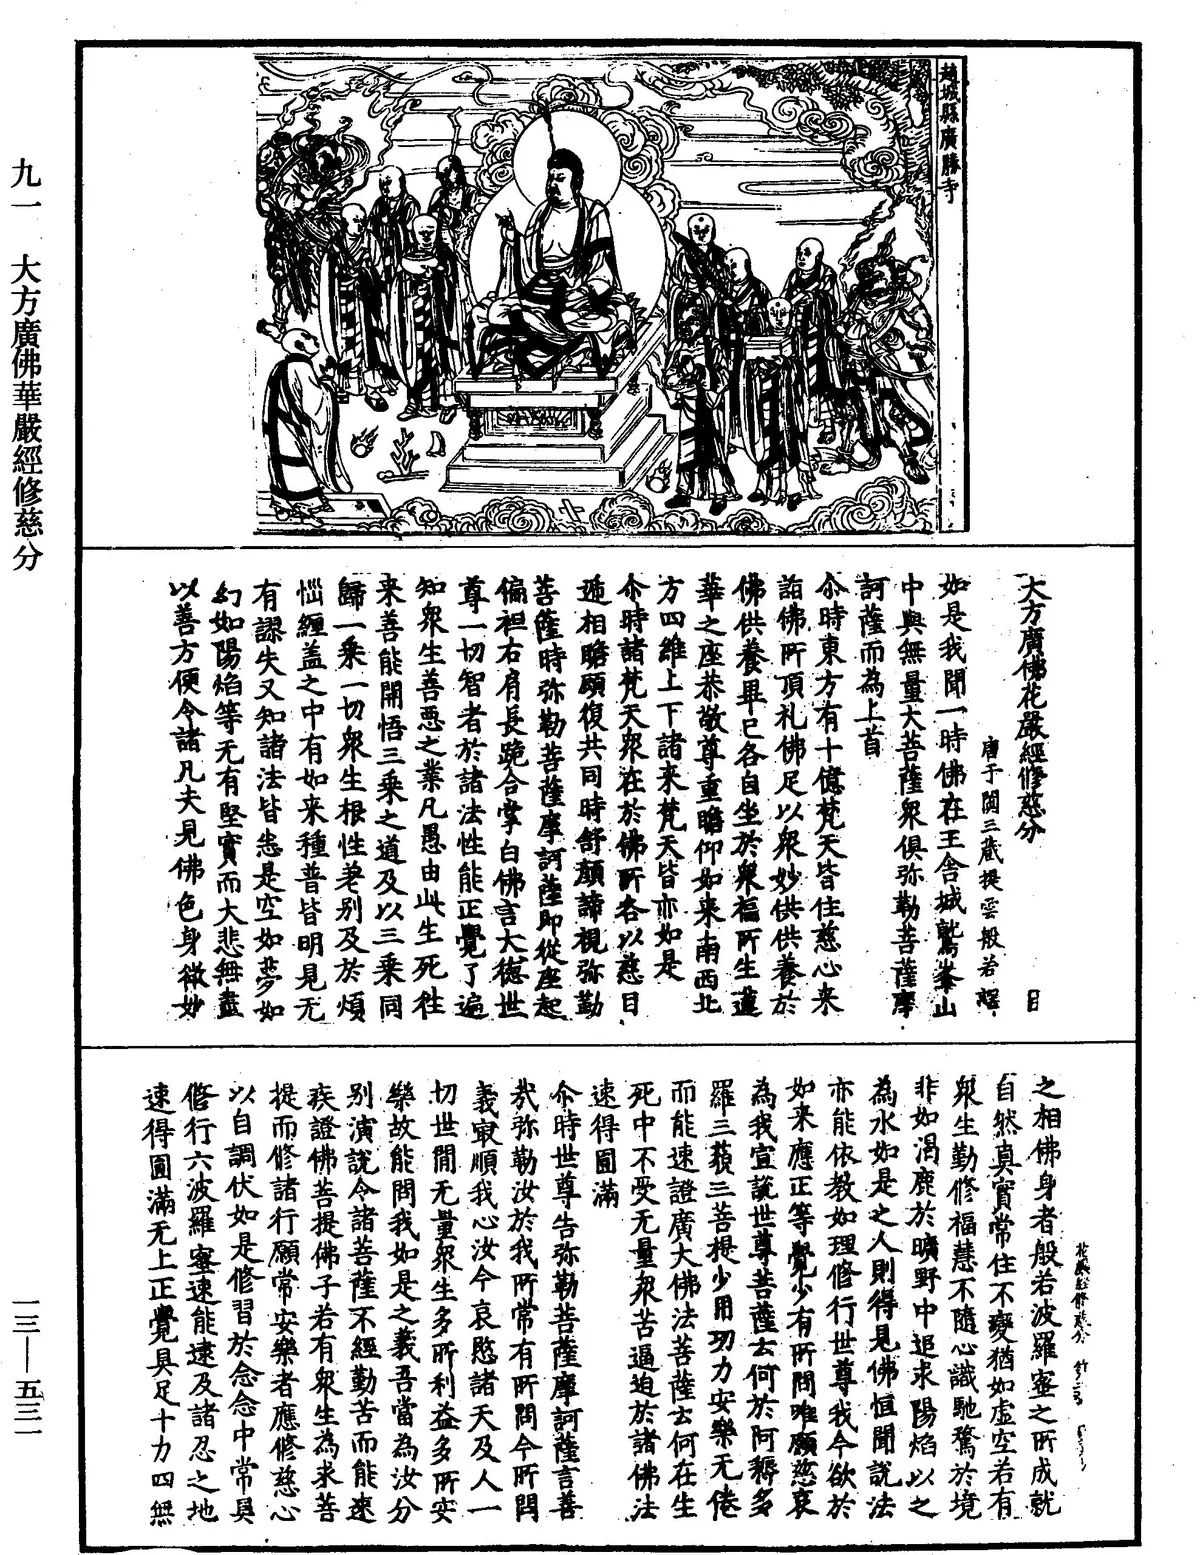 趙城縣廣勝寺
大方廣佛花嚴經修慈分
唐于闐三藏提雲般若譯
如是我聞一時佛在王舍城鷲峯山
中與無量大菩薩衆俱弥勒菩薩摩
訶薩而為上首
尒時東方有十億梵天皆住慈心来
詣佛所頂礼佛足以衆妙供供養於
佛供養畢已各自坐於衆福所生蓮
華之座恭敬尊重瞻仰如来南西北
方四維上下諸来梵天皆亦如是
尒時諸梵天衆在於佛所各以慈目
遞相瞻顧復共同時舒顔諦視弥勒
菩薩時弥勒菩薩摩訶薩即從座起
偏袒右肩長跪合掌白佛言大德世
尊一切智者於諸法性能正覺了遍
知衆生善惡之業凡愚由此生死往
来善能開悟三乘之道及以三乘同
歸一乘一切衆生根性差别及於煩
惱纏盖之中有如来種普皆明見无
有謬失又知諸法皆悉是空如夢如
幻如陽焰等无有堅實而大悲無盡
以善方便令諸凡夫見佛色身微妙
之相佛身者般若波羅蜜之所成就
自然真實常住不變猶如虚空若有
衆生勤修福慧不隨心識馳騖於境
非如渴鹿於曠野中追求陽焰以之
為水如是之人則得見佛恒聞說法
亦能依教如理修行世尊我今欲於
如来應正等覺少有所問唯願慈哀
為我宣說世尊菩薩云何於阿耨多
羅三藐三菩提少用功力安樂无倦
而能速證廣大佛法菩薩云何在生
死中不受无量衆苦逼迫於諸佛法
速得圓滿
尒時世尊告弥勒菩薩摩訶薩言善
哉弥勒汝於我所常有所問今所問
義㝡順我心汝今哀愍諸天及人一
切世間无量衆生多所利益多所安
樂故能問我如是之義吾當為汝分
别演說令諸菩薩不經勤苦而能速
疾證佛菩提佛子若有衆生為求菩
提而修諸行願常安樂者應修慈心
以自調伏如是修習於念念中常具
修行六波羅蜜速能逮及諸忍之地
速得圓滿无上正覺具足十力四無
九一　大方廣佛華嚴經修慈分
一三—五三一